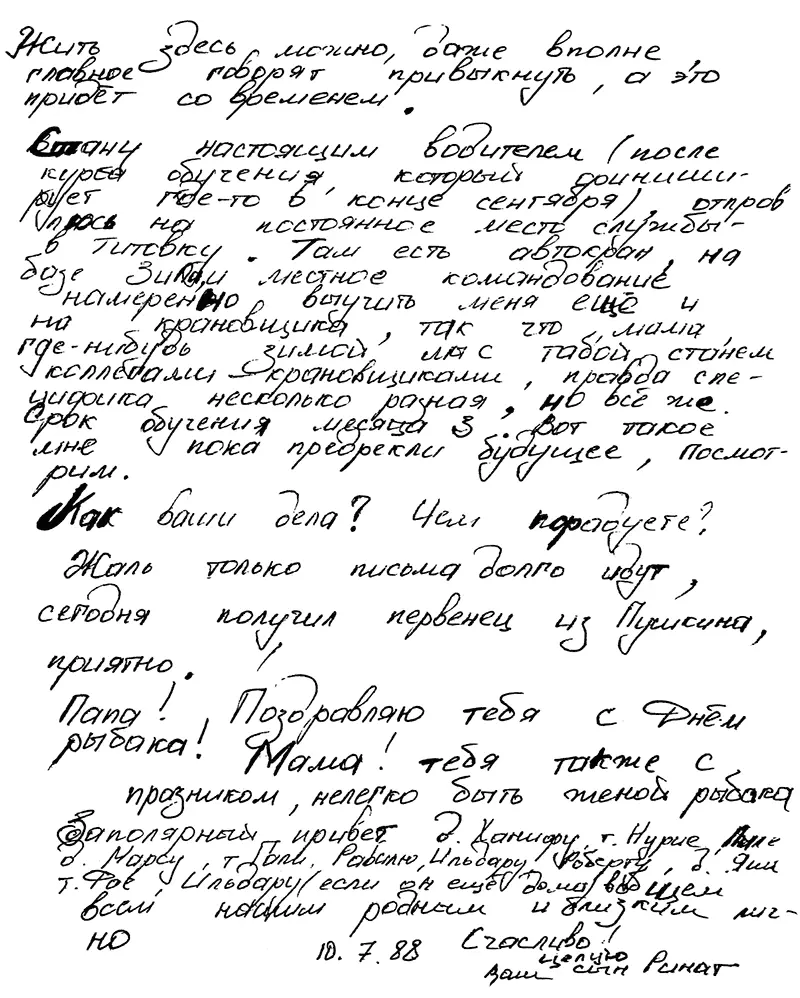 Жить здесь можно, даже вполне,
главное говорят привыкнуть, а это
придёт со временем.
Стану настоящим водителем (после
курса обучения, который финиши-
рует где-то в конце сентября), отправ
люсь на постоянное место службы-
в Титовку. Там есть автокран, на
базе Зила, местное командование
намеренно выучить меня ещё и
на крановщика, так что, мама
где-нибудь зимой мы с табой станем
коллегами - крановщиками, правда спе-
цифика несколько разная, но всё же.
Срок обучения месяца 3. Вот такое
мне пока предрекли будущее, посмот-
рим.
Как ваши дела? Чем порадуете?
Жаль только письма долго идут,
сегодня получил первенец из Пушкина,
приятно.
Папа! Поздравляю тебя с Днём
рыбака! Мама! тебя также с
празником, нелегко быть женой рыбака
Заполярный привет д. Ханифу, т. Нурие,
д. Марсу, т. Гали, Равилю, Ильдару, Роберту, д. Яши
т. Фае, Ильдару (если он ещё дома) вобщем
всем нашим родным и близким лич-
но
10. 7. 88 Счасливо!
целую
ваш сын Ринат